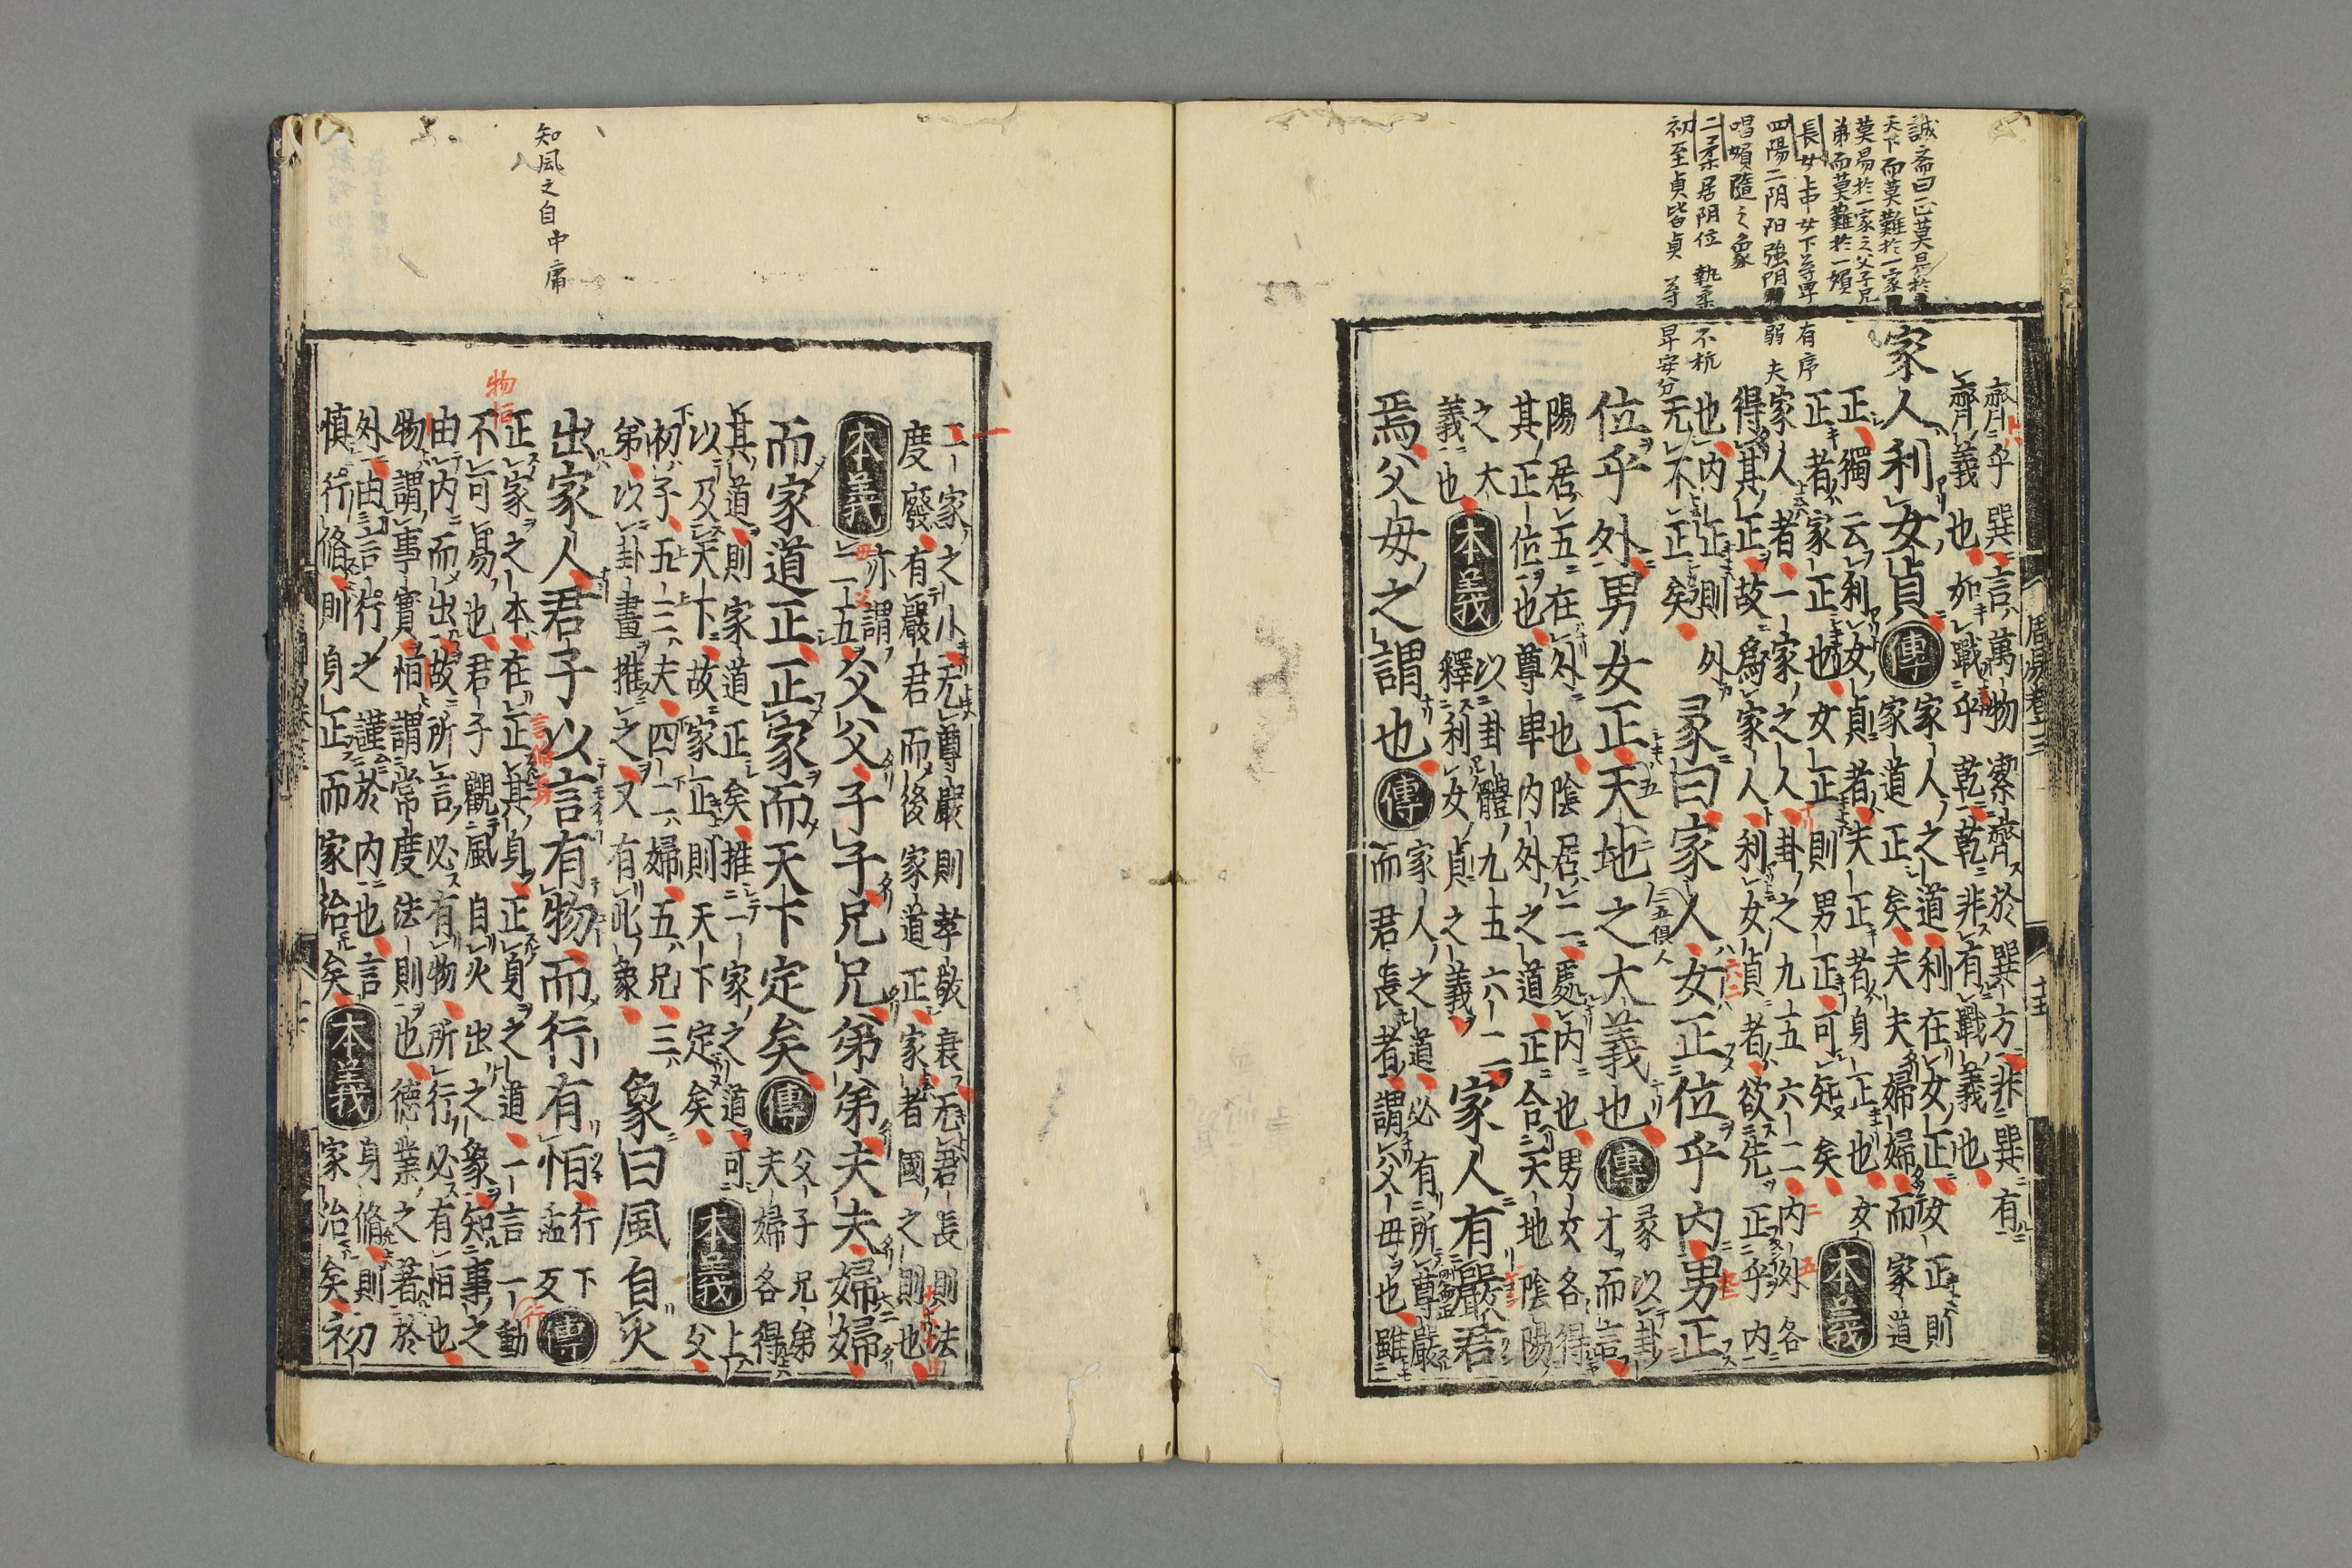 誠斎曰正莫易於
天下而莫難於一家
莫易於一家之父子兄
弟而莫難於一婦
長女上中女下尊卑有序
四陽二阴阳強阴弱夫
唱婦隨之象
二柔居阴位執柔不抗
初至貞皆貞
齊乎巽言萬物潔齊於巽方非巽有
齊義也如戰乎乾乾非有戰義也
家人利女貞
傳
家人之道利在女正女正則
家道正矣夫夫婦婦而家道
正獨云利女貞者夫正者身正也女
正者家正也女正則男正可知矣
本義
家人者一家之人卦之九五六二內外各
得其正故爲家人利女貞者欲先正乎內
也內正則外无不正矣
彖曰家人女正位乎內男正
位乎外男女正天地之大義也
傳
彖以卦才而言
陽居五在外也陰居二處內也男女各得
其正位也尊卑內外之道正合天地陰陽
之大義也
本義
以卦體九五六二釋利女貞之義
家人有嚴君
焉父母之謂也
傳
家人之道必有所尊嚴
而君長者謂父母也雖
一家之小无尊嚴則孝敬衰无君長則法
度廢有嚴君而後家道正家者國之則也
本義
亦謂二五
父父子子兄兄弟弟夫夫婦婦
而家道正正家而天下定矣
傳
父子兄弟夫婦各得
其道則家道正矣推一家之道可
以及天下故家正則天下定矣
本義
上父
初子五三夫四二婦五兄三
弟以卦畫推之又有此象
象曰風自火
出家人君子以言有物而行有恒
行下孟反
傳
正家之本在正其身正身之道一言一動
不可易也君子觀風自火出之象知事之
由內而出故所言必有物所行必有恒也
物謂事實恒謂常度法則也德業之著於
外由言行之謹於內也言
慎行脩則身正而家治矣
本義
身脩則
家治矣
初
知風之自中庸
物恒
言脩身
周易卷十三